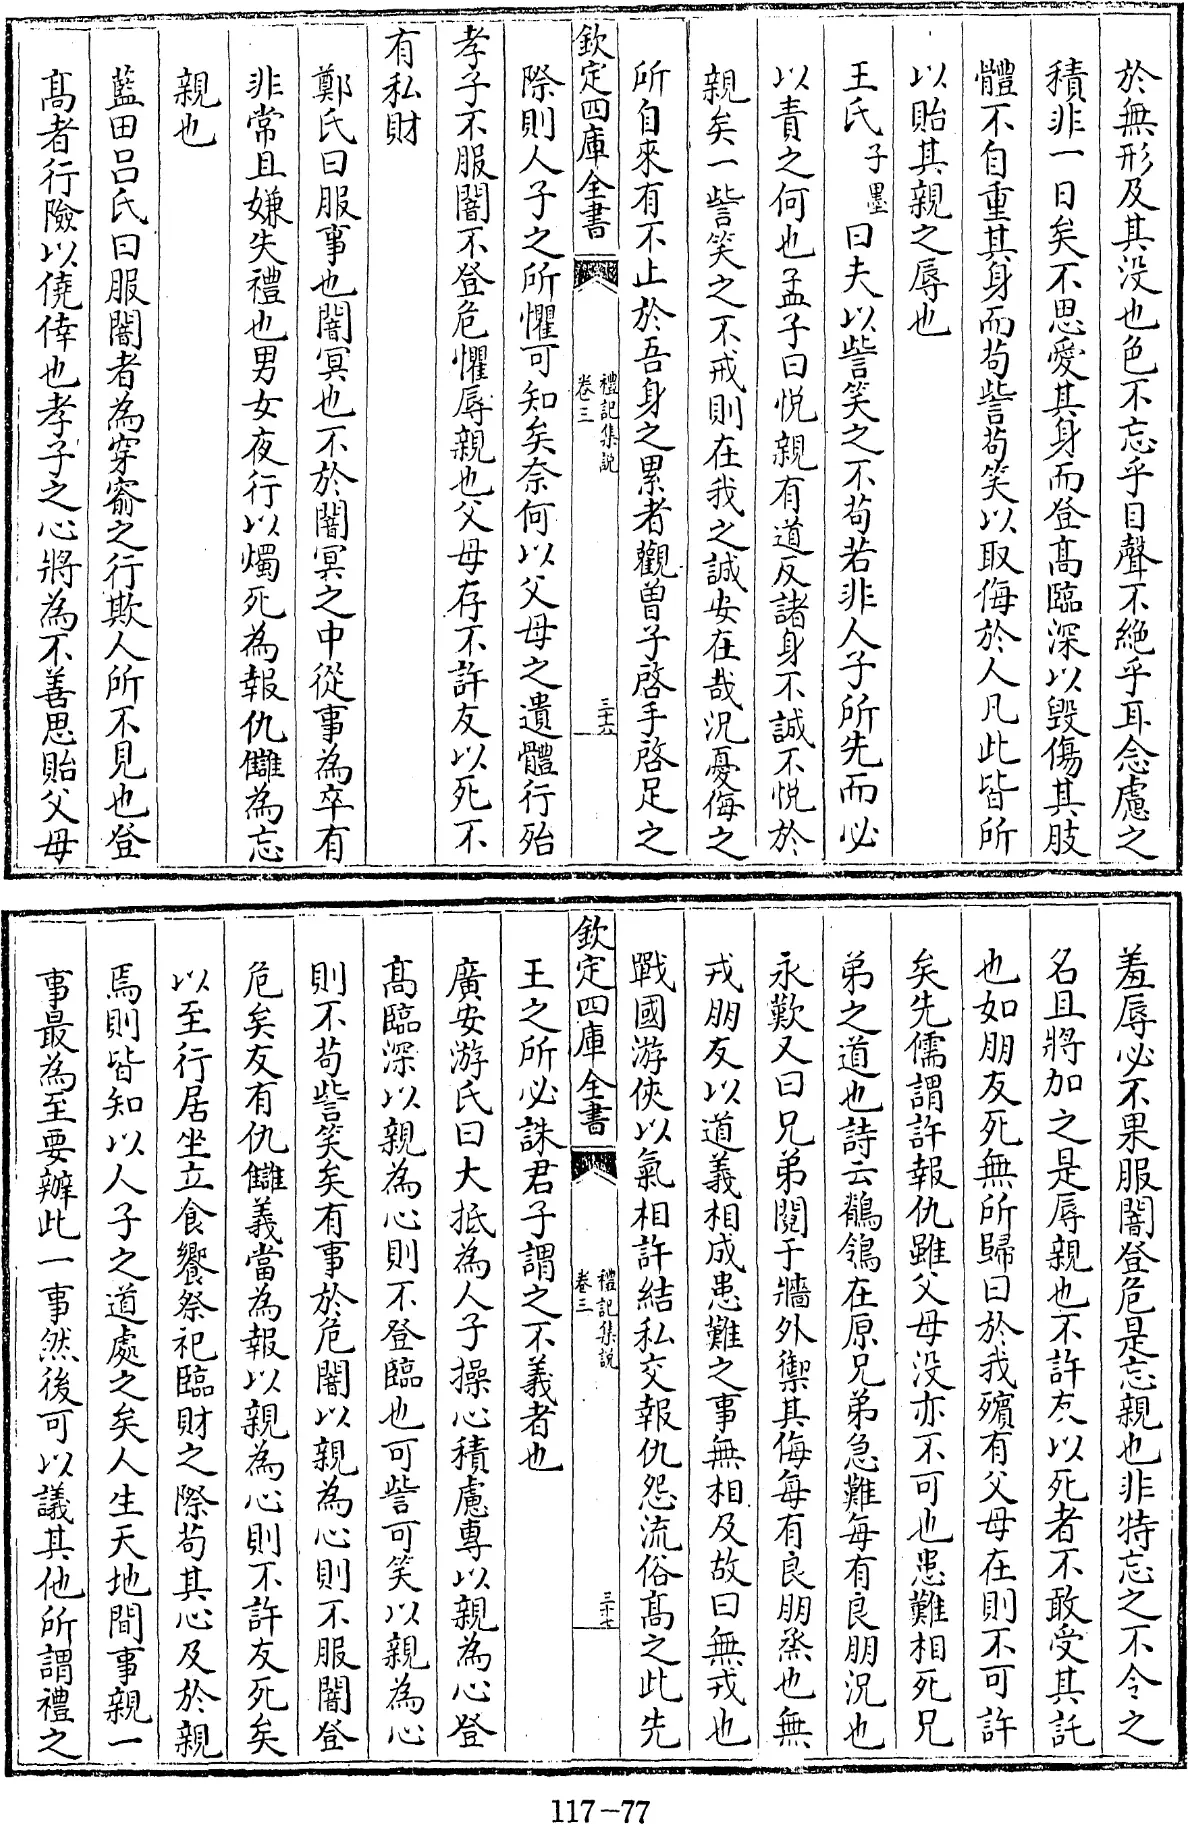 於無形及其没也色不忘乎目聲不絶乎耳念慮之
積非一日矣不思愛其身而登髙臨深以毁傷其肢
體不自重其身而苟訾苟笑以取侮於人凡此皆所
以貽其親之辱也
王氏子墨曰夫以訾笑之不苟若非人子所先而必
以責之何也孟子曰悦親有道反諸身不誠不悦於
親矣一訾笑之不戒則在我之誠安在哉況憂侮之
所自來有不止於吾身之累者觀曽子啓手啓足之
欽定四庫全書
禮記集説
卷三
三十六
際則人子之所懼可知矣奈何以父母之遺體行殆
孝子不服闇不登危懼辱親也父母存不許友以死不
有私財
鄭氏曰服事也闇冥也不於闇冥之中從事為卒有
非常且嫌失禮也男女夜行以燭死為報仇讎為忘
親也
藍田吕氏曰服闇者為穿窬之行欺人所不見也登
髙者行險以僥倖也孝子之心將為不善思貽父母
羞辱必不果服闇登危是忘親也非特忘之不令之
名且將加之是辱親也不許友以死者不敢受其託
也如朋友死無所歸曰於我殯有父母在則不可許
矣先儒謂許報仇雖父母没亦不可也患難相死兄
弟之道也詩云鶺鴒在原兄弟急難每有良朋況也
永歎又曰兄弟鬩于牆外禦其侮每有良朋烝也無
戎朋友以道義相成患難之事無相及故曰無戎也
戰國游俠以氣相許結私交報仇怨流俗髙之此先
欽定四庫全書
禮記集説
卷三
三十七
王之所必誅君子謂之不義者也
廣安游氏曰大抵為人子操心積慮專以親為心登
髙臨深以親為心則不登臨也可訾可笑以親為心
則不苟訾笑矣有事於危闇以親為心則不服闇登
危矣友有仇讎義當為報以親為心則不許友死矣
以至行居坐立食饗祭祀臨財之際苟其心及於親
焉則皆知以人子之道處之矣人生天地間事親一
事最為至要辦此一事然後可以議其他所謂禮之
117-77